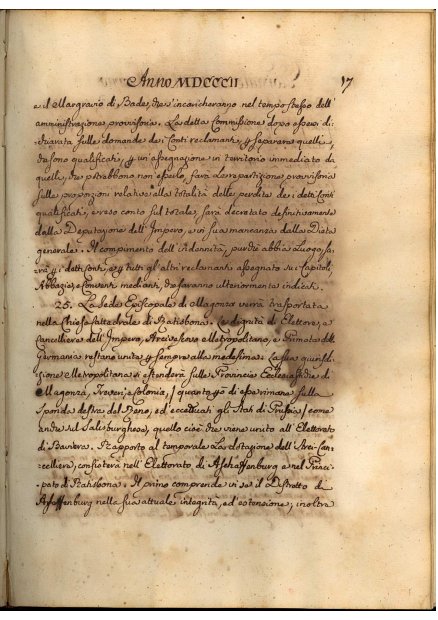 Anno MDCCCII 17
e il Margravio di Bade, che s'incaricheranno nel tempo stesso dell'
amministrazione provvisoria. La detta Commissione dopo essersi di:
:chiarata sulle domande de i Conti reclamanti, e separare quelli,
che sono qualificati, ad un assegnazione in territorio immediato da
quelli, che potrebbono non esserlo, farà la repartizione provvisoria
sulle proporzioni relative alla totalità delle perdite de i detti Conti
qualificati, e reso conto sul totale, sarà decretato definitivamente
dalla Deputazione dell'Impero, e in sua mancanza dalla Dieta
generale. Il compimento dell'Indennità, purchè abbia luogo, sa:
rà e i detti Conti, e tutti gli altri reclamanti assegnato su i Capitoli,
Abbazie, e Conventi mediati, che saranno ulteriormente indicati.
25. La Sede Episcopale di Magonza verrà trasportata
nella Chiesa Cattedrale di Ratisbona. Le dignità di Elettore, e
Cancelliere dell'Impero, Arcivescovo Metropolitano, e Primate del
Germania restano unite e sempre alla medesima. La sua giurisdi:
zione Metropolitana si estenderà sulle Provincie Ecclesiastiche di
Magonza, Treveri, e Colonia, (quanto di esse rimane sulla
sponda destra del Reno, ed eccettuati gli Stati di Prussia) come
anche sul Salisburghese, quello cioè che viene unito all'Elettorato
di Baviera. Rapporto al temporale la dotazione dell'Arci-Can:
:celliere, consisterà nell'Elettorato di Aschaffenburg e nel Princi:
:pato di Ratisbona. Il primo comprende in se il Distretto di
Aschaffenburg nella sua attuale integrità, ed estensione; inoltre